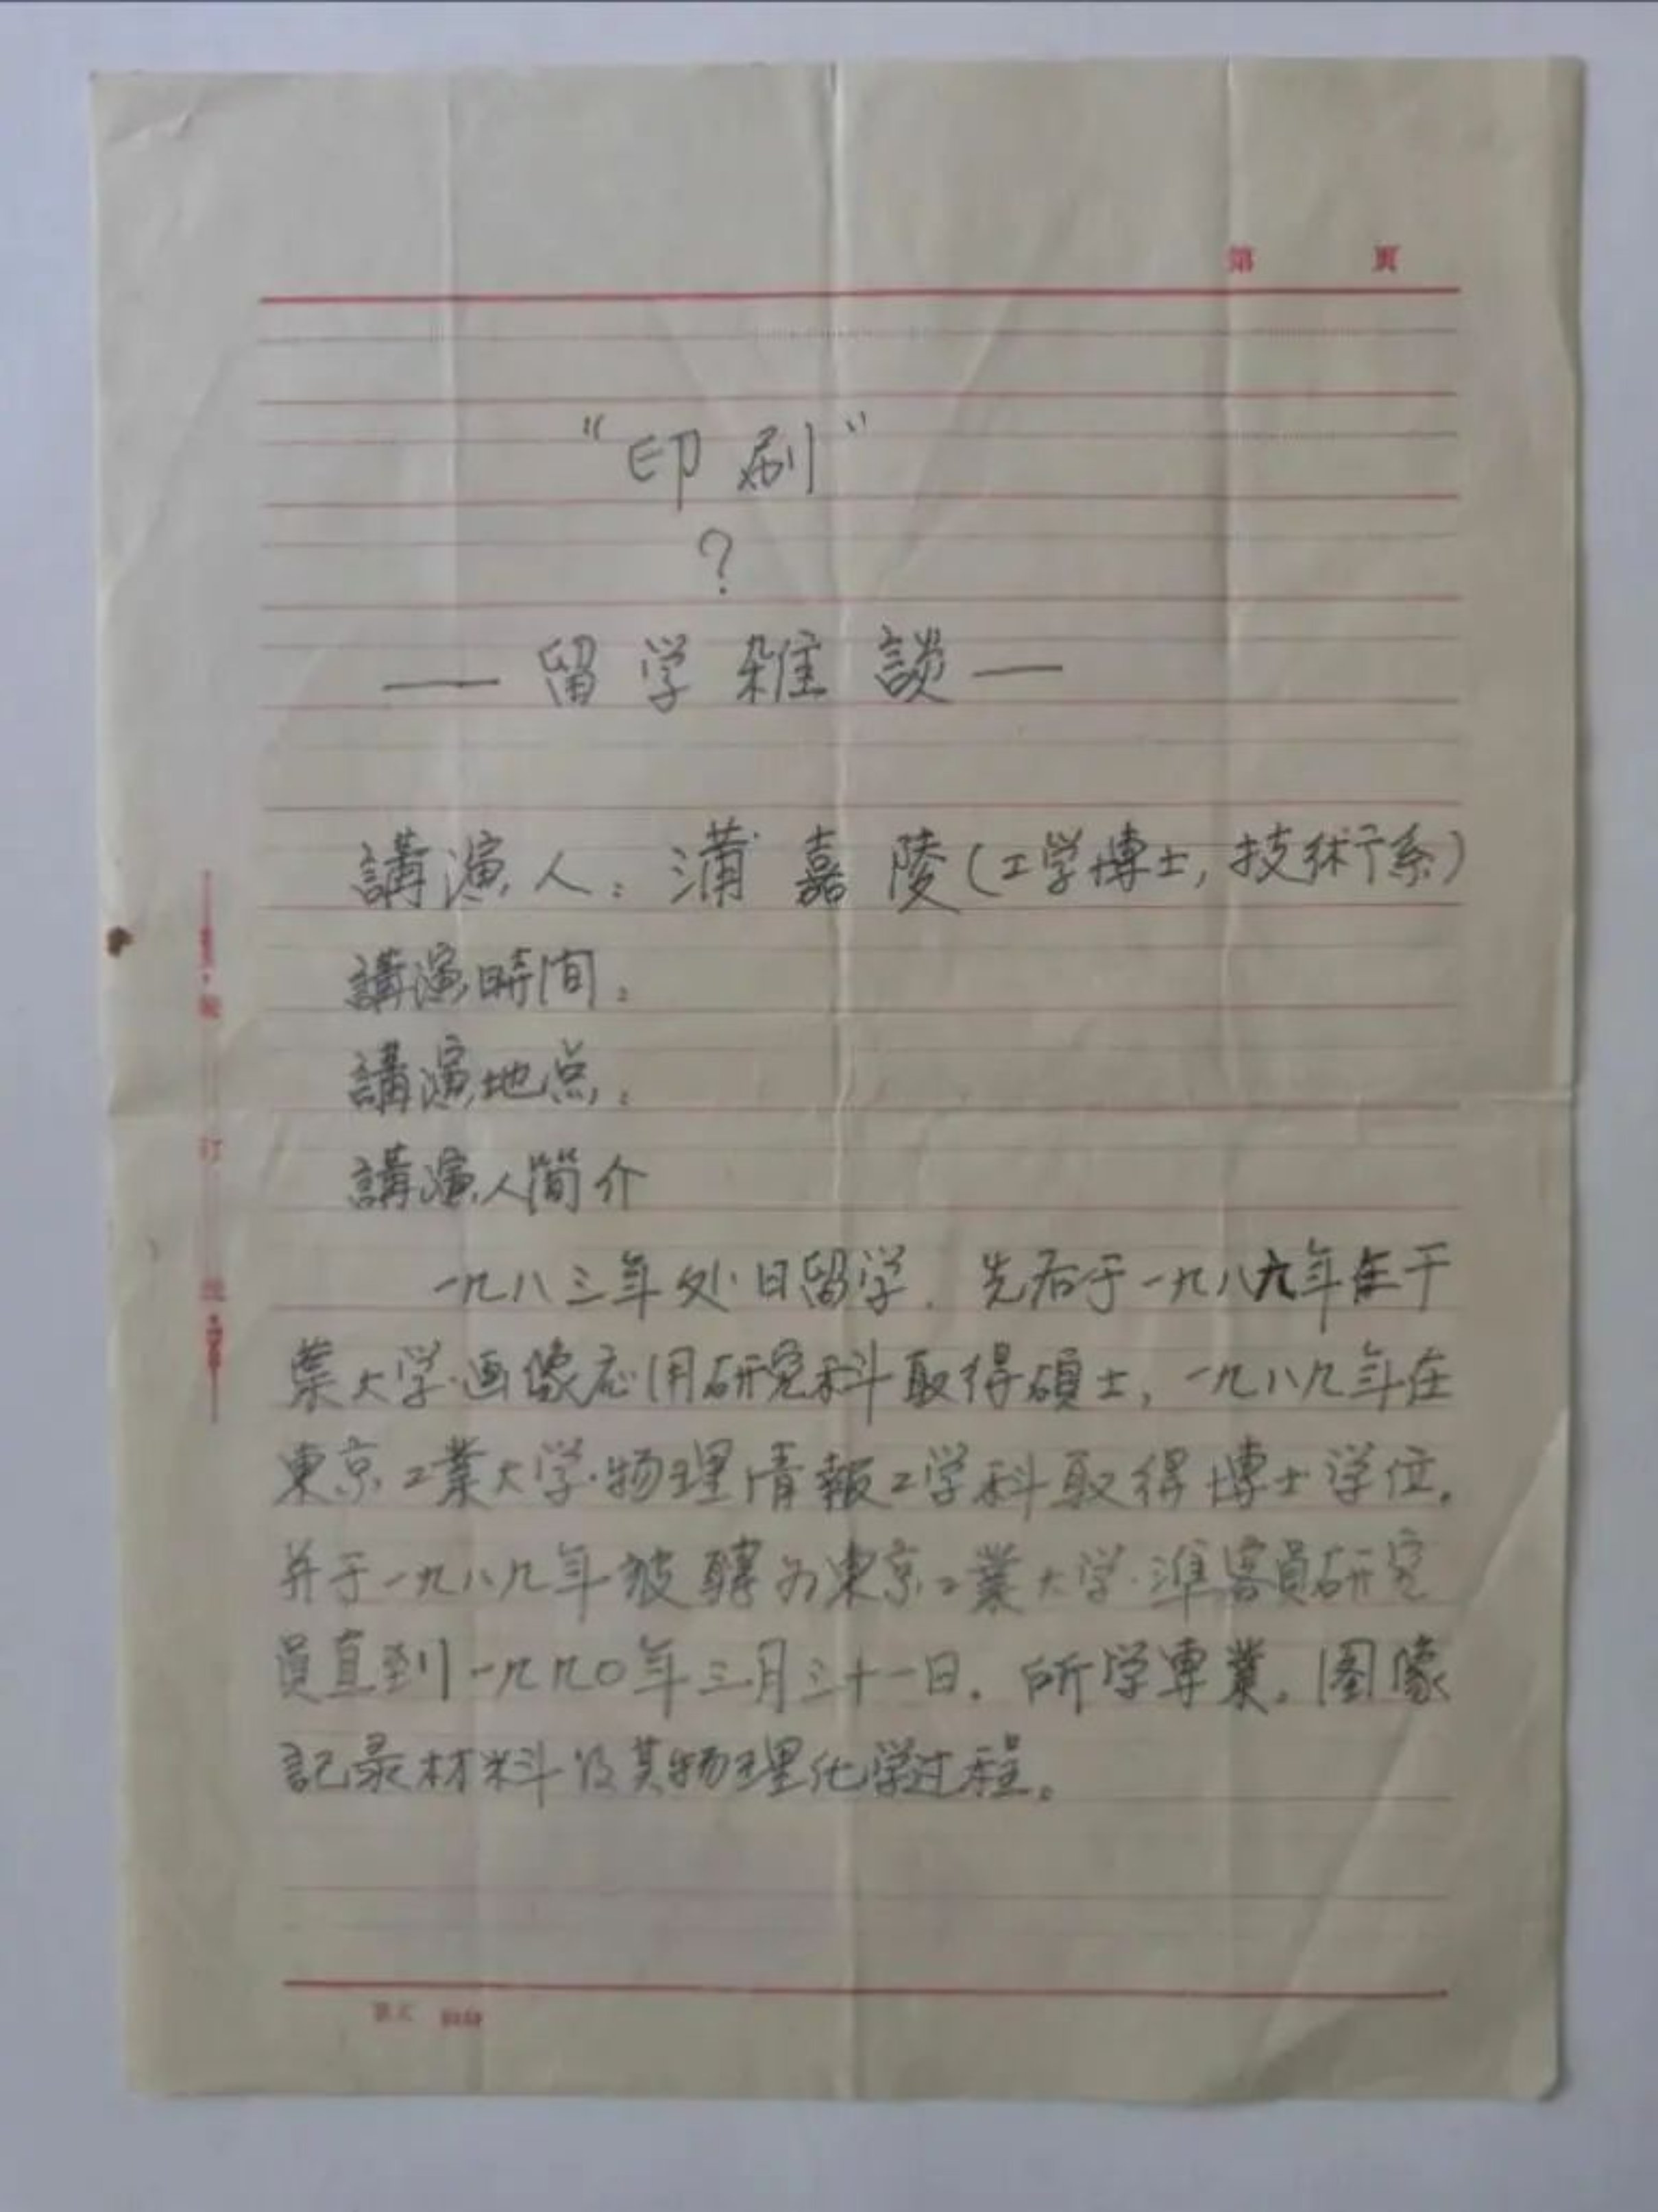 第 页
“印刷”
?
— 留学雑談 —
講演人：蒲嘉陵（工学博士，技術系）
講演時间：
講演地点：
講演人簡介
一九八三年赴日留学．先后于一九八六年在千
葉大学·画像応用研究科取得碩士，一九八九年在
東京工業大学·物理情報工学科取得博士学位。
并于一九八九年被聘为東京工業大学·準客員研究
員直到一九九〇年三月三十一日．所学専業。图像
記录材料及其物理化学过程。
訂